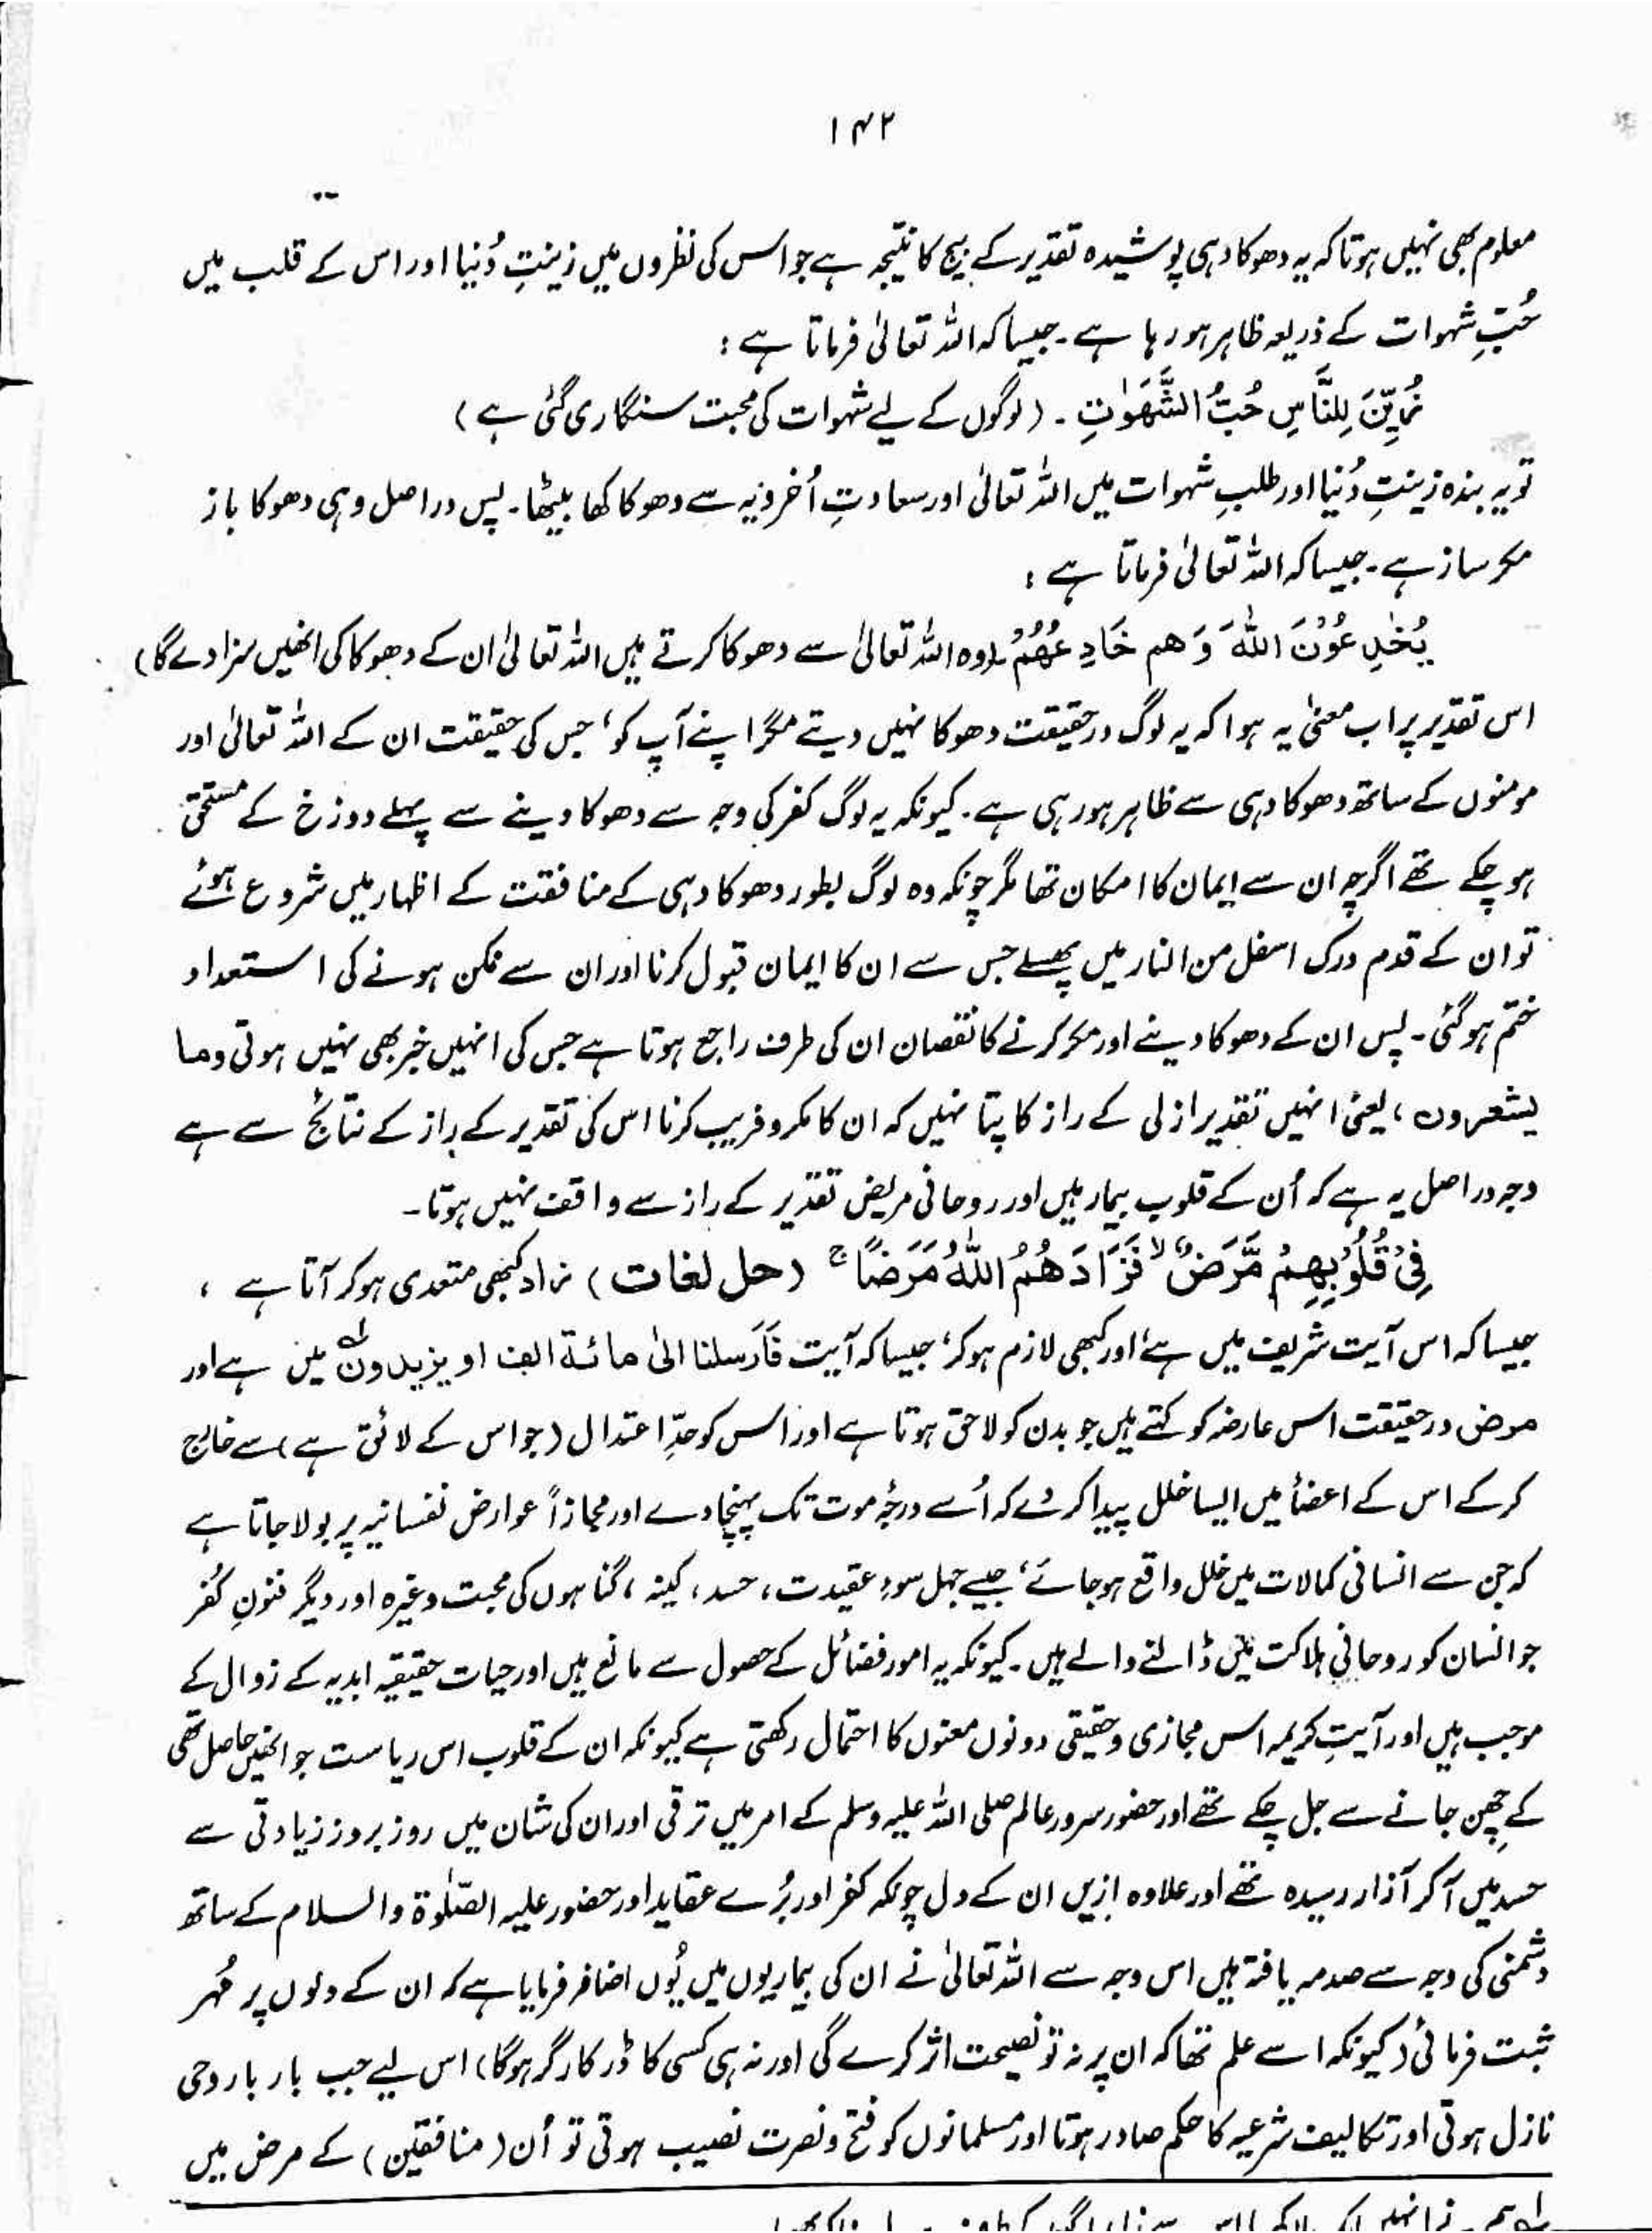 ۱۴۲
معلوم بھی نہیں ہوتا کہ یہ دھوکا دہی پوشیدہ تقدیر کے بیج کا نتیجہ ہے جو اس کی نظروں میں زینتِ دُنیا اور اس کے قلب میں
حُبِّ شہوات کے ذریعہ ظاہر ہو رہا ہے۔ جیسا کہ اللہ تعالیٰ فرماتا ہے :
زُیِّنَ لِلنَّاسِ حُبُّ الشَّھَوٰتِ ۔ (لوگوں کے لیے شہوات کی محبت سنگاری گئی ہے )
تو یہ بندہ زینتِ دُنیا اور طلبِ شہوات میں اللہ تعالیٰ اور سعادتِ اُخرویہ سے دھوکا کھا بیٹھا۔ پس دراصل وہی دھوکا باز
مکر ساز ہے۔ جیسا کہ اللہ تعالیٰ فرماتا ہے :
یُخٰدِعُوْنَ اللہَ وَھم خَادِعُھُمْ (وہ اللہ تعالیٰ سے دھوکا کرتے ہیں اللہ تعالیٰ ان کے دھوکا کی انھیں سزا دے گا)
اس تقدیر پر اب معنیٰ یہ ہوا کہ یہ لوگ درحقیقت دھوکا نہیں دیتے مگر اپنے آپ کو، جس کی حقیقت ان کے اللہ تعالیٰ اور
مومنوں کے ساتھ دھوکا دہی سے ظاہر ہو رہی ہے۔ کیونکہ یہ لوگ کفر کی وجہ سے دھوکا دینے سے پہلے دوزخ کے مستحق
ہو چکے تھے اگرچہ ان سے ایمان کا امکان تھا مگر چونکہ وہ لوگ بطور دھوکا دہی کے منافقت کے اظہار میں شروع ہوئے
تو ان کے قدم درک اسفل من النار میں پھسلے جس سے ان کا ایمان قبول کرنا اور ان سے ممکن ہونے کی استعداد
ختم ہو گئی۔ پس ان کے دھوکا دینے اور مکر کرنے کا نقصان ان کی طرف راجع ہوتا ہے جس کی انہیں خبر بھی نہیں ہوتی وما
یشعرون ، یعنی انہیں تقدیر ازلی کے راز کا پتا نہیں کہ ان کا مکر و فریب کرنا اس کی تقدیر کے راز کے نتائج سے ہے
وجہ دراصل یہ ہے کہ اُن کے قلوب بیمار ہیں اور روحانی مریض تقدیر کے راز سے واقف نہیں ہوتا۔
فِیْ قُلُوْبِھِمْ مَّرَضٌ ۙ فَزَادَھُمُ اللہُ مَرَضًا ۚ (حل لغات) زاد کبھی متعدی ہو کر آتا ہے ،
جیسا کہ اس آیت شریف میں ہے، اور کبھی لازم ہو کر، جیسا کہ آیت فَاَرسلنا الیٰ مائۃ الف او یزیدون ؎۱ میں ہے اور
مرض درحقیقت اس عارضہ کو کہتے ہیں جو بدن کو لاحق ہوتا ہے اور اس کو حدِّ اعتدال (جو اس کے لائق ہے) سے خارج
کر کے اس کے اعضأ میں ایسا خلل پیدا کر دے کہ اُسے درجۂ موت تک پہنچا دے اور مجازاً عوارض نفسانیہ پر بولا جاتا ہے
کہ جن سے انسانی کمالات میں خلل واقع ہو جائے، جیسے جہل سوءِ عقیدت ، حسد ، کینہ ، گناہوں کی محبت وغیرہ اور دیگر فنونِ کُفر
جو انسان کو روحانی ہلاکت میں ڈالنے والے ہیں۔ کیونکہ یہ امور فضائل کے حصول سے مانع ہیں اور حیات حقیقیہ ابدیہ کے زوال کے
موجب ہیں اور آیتِ کریمہ اس مجازی و حقیقی دونوں معنوں کا احتمال رکھتی ہے کیونکہ ان کے قلوب اس ریاست جو انھیں حاصل تھی
کے چھن جانے سے جل چکے تھے اور حضور سرور عالم صلی اللہ علیہ وسلم کے امر میں ترقی اور ان کی شان میں روز بروز زیادتی سے
حسد میں آ کر آزار رسیدہ تھے اور علاوہ ازیں ان کے دل چونکہ کفر اور بُرے عقاید اور حضور علیہ الصّلٰوۃ والسلام کے ساتھ
دشمنی کی وجہ سے صدمہ یافتہ ہیں اس وجہ سے اللہ تعالیٰ نے ان کی بیماریوں میں یُوں اضافہ فرمایا ہے کہ ان کے دلوں پر مُہر
ثبت فرمائی (کیونکہ اسے علم تھا کہ ان پر نہ تو نصیحت اثر کرے گی اور نہ ہی کسی کا ڈر کارگر ہوگا) اس لیے جب بار بار وحی
نازل ہوتی اور تکالیف شرعیہ کا حکم صادر ہوتا اور مسلمانوں کو فتح و نصرت نصیب ہوتی تو اُن (منافقین) کے مرض میں